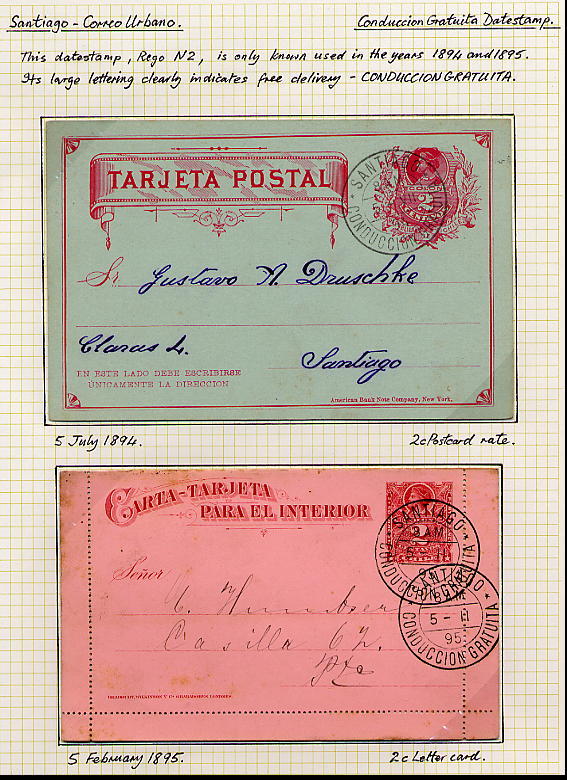 Santiago - Correo Urbano.
Conduccion Gratuita Datestamp.
This datestamp, Rego N2, is only known used in the years 1894 and 1895.
Its large lettering clearly indicates free delivery - CONDUCCION GRATUITA.
TARJETA POSTAL
SANTIAGO
CONDUCCION GRATUITA
2
CENTAVOS
Sr. Gustavo A. Druschke
Claras 4.
Santiago
EN ESTE LADO DEBE ESCRIBIRSE
ÚNICAMENTE LA DIRECCION
American Bank Note Company, New York.
5 July 1894.
2c Postcard rate.
CARTA-TARJETA
PARA EL INTERIOR
SANTIAGO
9 AM
5 - II
95
CONDUCCION GRATUITA
SANTIAGO
AM
5 - II
95
CONDUCCION GRATUITA
Señor
Casilla 62.
Pte
BRADBURY, WILKINSON Y Cª GRABADORES LONDRES.
5 February 1895.
2c Letter card.